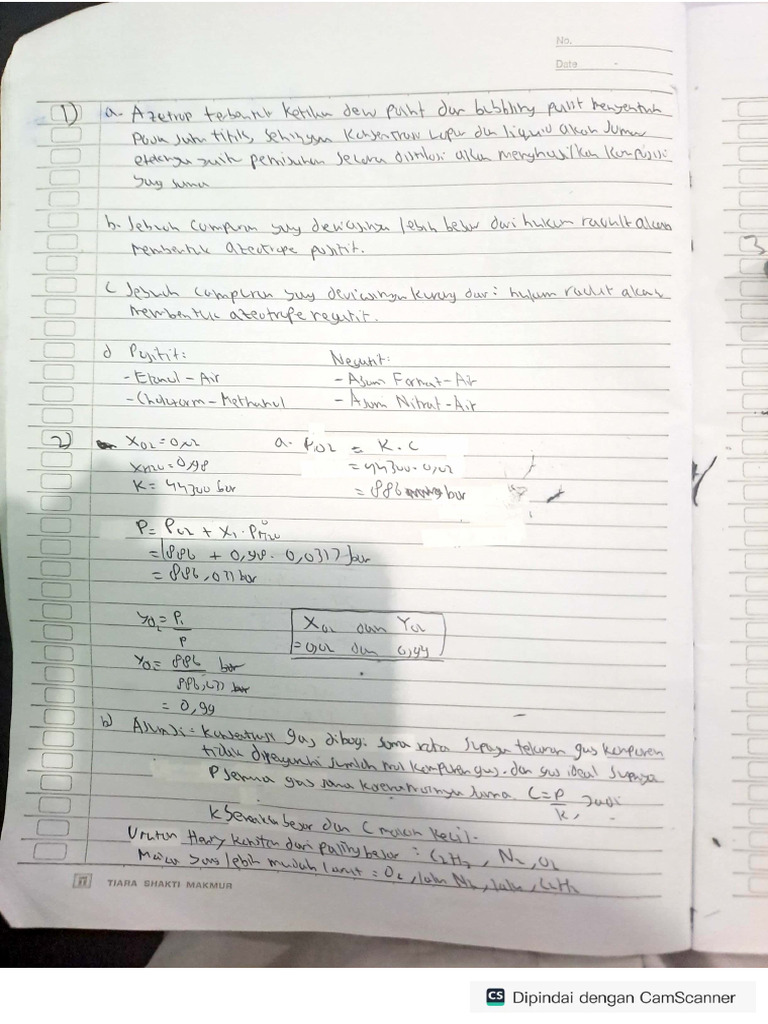 No.
Date
1) a. Azetrop terbentuk ketika dew point dan bubbling point menyentuh
pada satu titik, sehingga konsentrasi dan liquid akan sama
pemisahan secara distilasi akan menghasilkan komposisi
yang sama
b. Sebuah campuran yang deviasinya lebih besar dari hukum raoult akan
membentuk azeotrope positif.
c Sebuah campuran yang deviasinya kurang dari hukum raoult akan
membentuk azeotrope negatif.
d Positif: Negatif:
- Etanol - Air - Asam Format - Air
- Chloroform - Methanol - Asam Nitrat - Air
2) XO2 = 0,02 a. PO2 = K . C
XH2O = 0,98 = 44300 . 0,02
K = 44300 bar = 886 bar
P = PO2 + X1 . P°H2O
= 886 + 0,98 . 0,0317 bar
= 886,031 bar
YO2 = P1/P XO2 dan YO2
= 0,02 dan 0,99
YO2 = 886 bar / 886,031 bar
= 0,99
b) Asumsi = konsentrasi gas dibagi sama rata supaya tekanan gas komponen
tidak dipengaruhi jumlah mol komponen gas. dan gas ideal supaya
P semua gas sama karena sama. C = P/K, jadi
K semakin besar dan C makin kecil.
Urutan Henry konstan dari paling besar : C2H2, N2, O2
Maka yang lebih mudah larut = O2, lalu N2, lalu, C2H2
TIARA SHAKTI MAKMUR
3
CS Dipindai dengan CamScanner